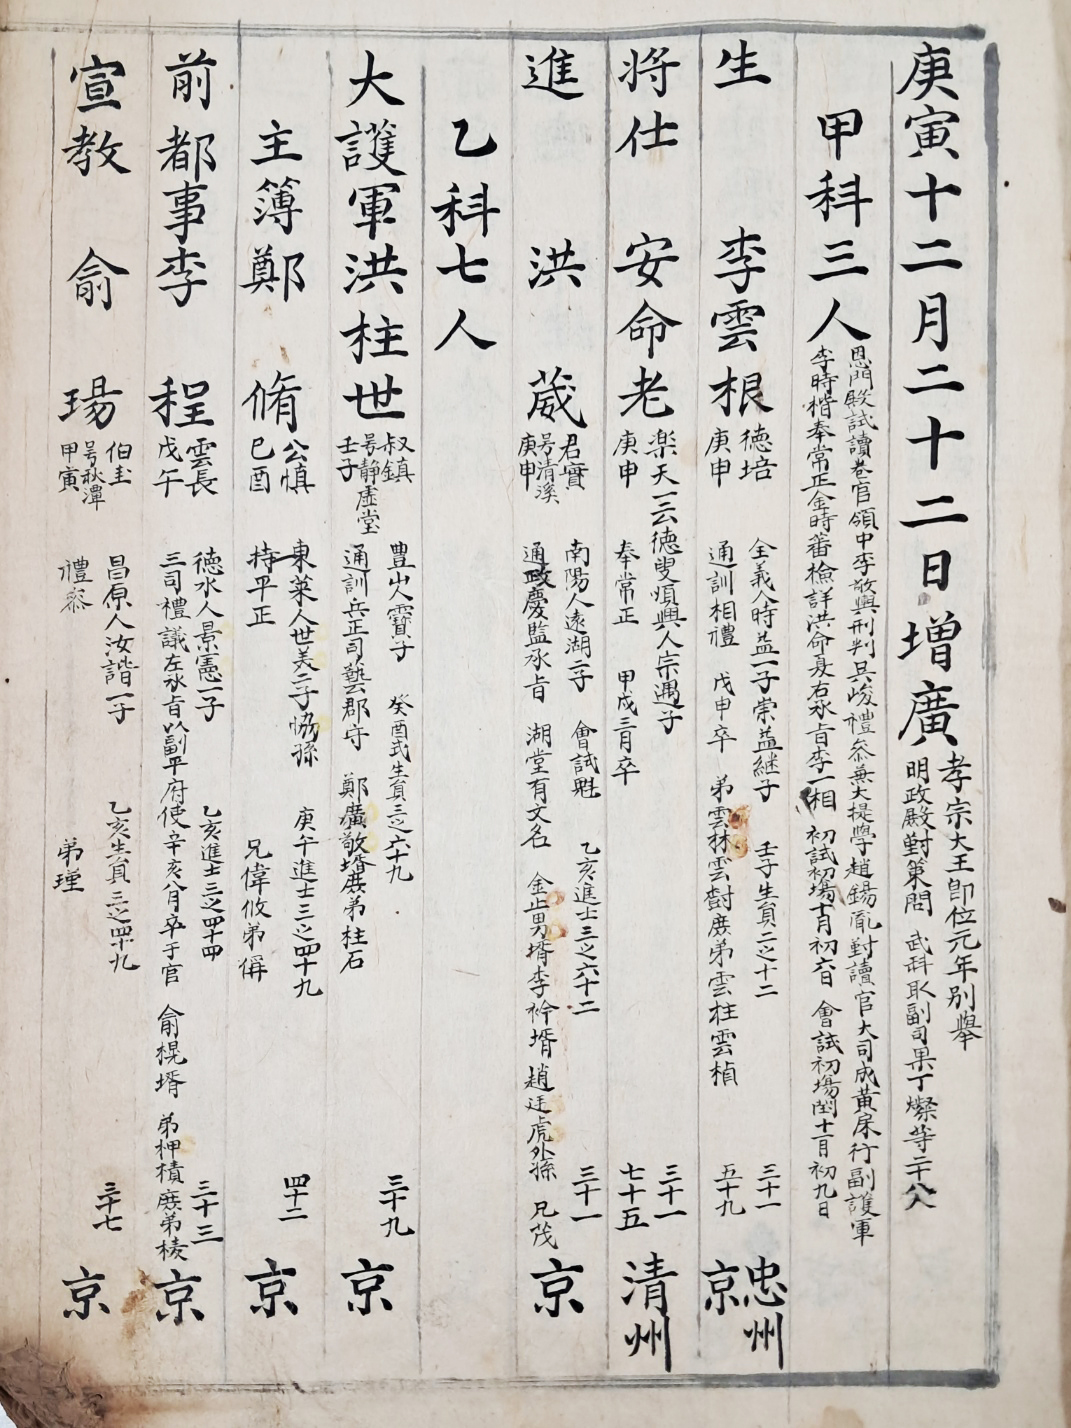 庚寅十二月二十二日增廣 孝宗大王卽位元年別擧
明政殿對策問 武科取副司果丁燦等二十八
甲科三人 恩門殿試讀卷官領中李敬輿刑判吳峻禮參兼大提學趙錫胤對讀官大司成黃床行副護軍
李時楷奉常正金時蕃檢詳洪命夏右承旨李一相 初試初場十月初六日 會試初場十一月初九日
生 李雲根 德培 庚申 全義人時益一子崇益継子 壬子生員二之十二 三十一 忠州
通訓相禮 戊申卒 弟雲林雲樹庶弟雲柱雲楨 五十九 京
將仕 安命老 楽天一云德叟 庚申 順興人宗遇子 三十一
奉常正 甲戌三月卒 七十五 清州
進 洪葳 君實 号清溪 庚申 南陽人遠湖二子 會試魁 乙亥進士三之六十二 三十一
通政慶監承旨 湖堂有文名 金止男壻李袊壻趙廷虎外孫 兄茂 京
乙科七人
大護軍洪柱世 叔鎮 号静虛堂 壬子 豊山人霙子 癸酉式生員三之六十九 三十九
通訓兵正司藝郡守 鄭廣敬壻庶弟柱石 京
主簿鄭脩 公慎 己酉 東萊人世美二子恊孫 庚午進士三之四十九 四十二
持平正 兄偉攸弟偋 京
前都事李程 雲長 戊午 德水人景憲一子 乙亥進士三之四十四 三十三
三司禮議左承旨以副平府使辛亥八月卒于官 俞榥壻 弟柙樍庶弟稜 京
宣教 俞瑒 伯圭 号秋潭 甲寅 昌原人汝諧一子 乙亥生員三之四十九 三十七
禮參 弟瑾 京